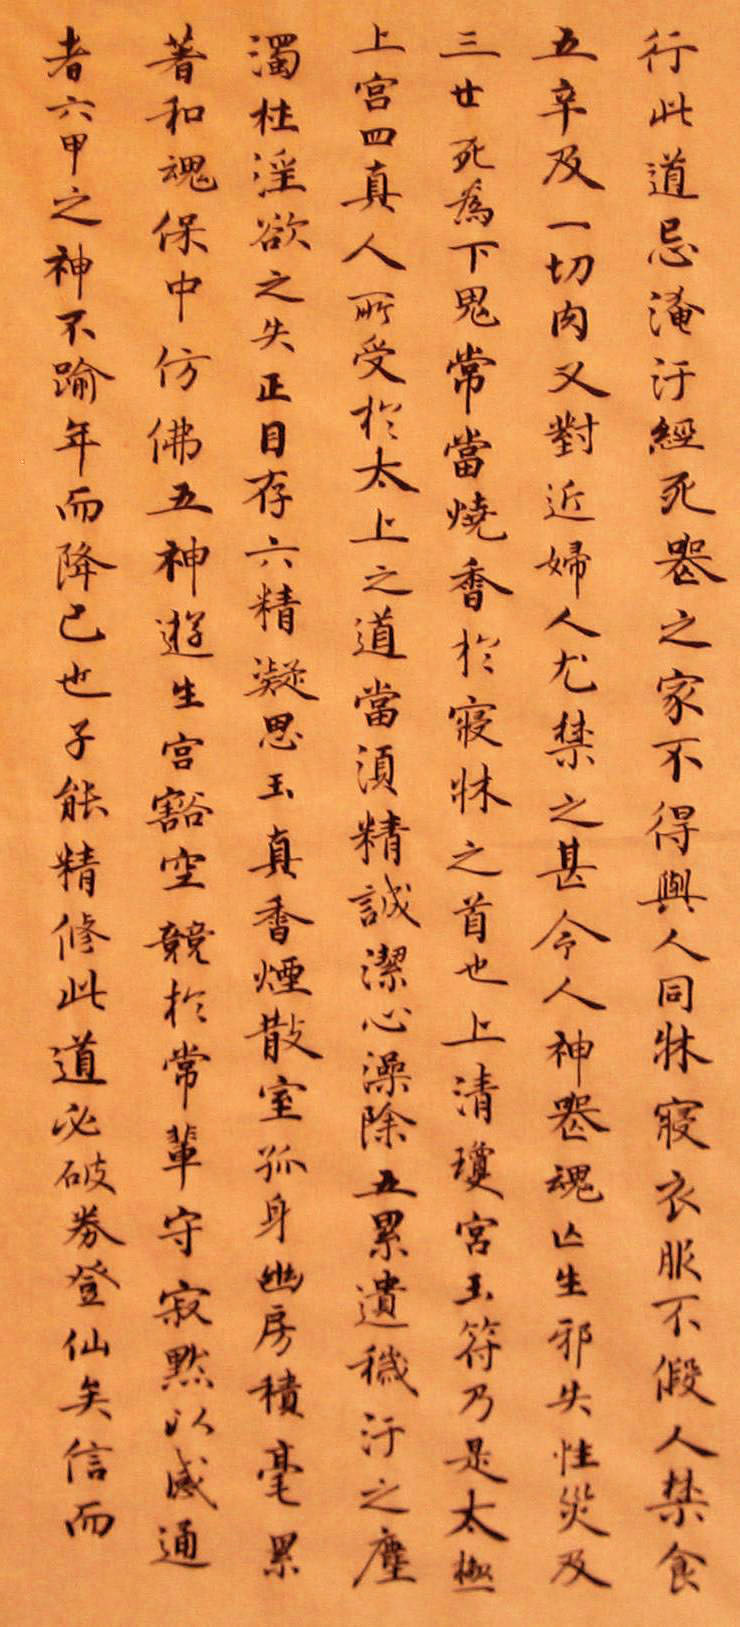 行此道忌淹汙經死器之家不得與人同牀寢衣服不假人禁食
五辛及一切肉又對近婦人尤禁之甚令人神器魂亡生邪失性災及
三世死為下鬼常當燒香於寢牀之首也上清瓊宮玉符乃是太極
上宮四真人所受於太上之道當須精誠潔心澡除五累遺穢汙之塵
濁杜淫欲之失正目存六精凝思玉真香煙散室孤身幽房積毫累
著和魂保中仿佛五神遊生宮豁空競於常輩守寂默以感通
者六甲之神不踰年而降己也子能精修此道必破券登仙矣信而